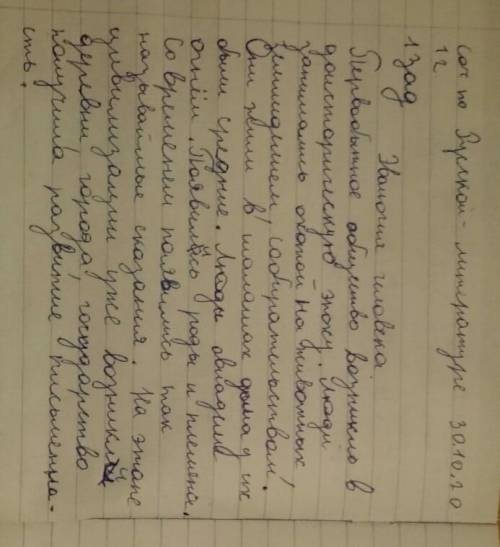 соч по Русской - литературе 30.10.20
1г
1 зад Эволюция человека
Первобытное общество возникло в
доисторическую эпоху. Люди
занимались охотой на животных,
земледелием, собирательством.
Они жили в шалашах дома у их
были средние. Люды овладели
огнём. Появились роды и племена.
Со временем появились так
называймые сказания. На этапе
цивилизации уже возникли
деревни, города, государство
получила развитие письменна-
сть.